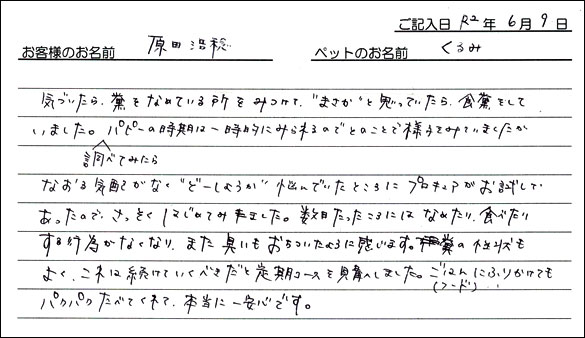 ご記入日 R2 年 6 月 9 日
お客様のお名前 原田 浩稔 ペットのお名前 くるみ
気づいたら、糞をなめている所をみつけて、"まさか"と思っていたら、食糞をして
いました。パピーの時期は一時的にみられるのでとのことで様子をみていましたが
調べてみたら
なおる気配がなく"どーしようか"悩んでいたところにプロキュアがお試しで
あったので、さっそくはじめてみました。数日たったころにはなめたり、食べたり
する行為がなくなり、また臭いもおちついたように感じます。糞の仕方も
よく、これは続けていくべきだと定期コースを購入しました。ごはんにふりかけても
(フード)
パクパクたべてくれて、本当に一安心です。